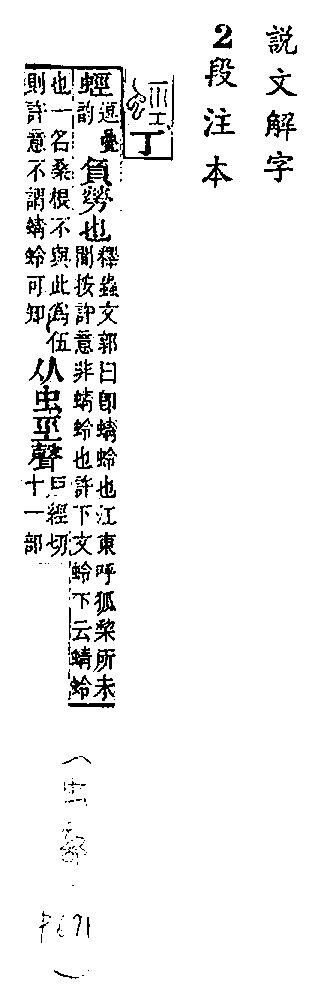 說文解字
2段注本
丁
蛵逗疊韵負勞也釋蟲文郭曰卽蜻蛉也江東呼狐棃所未
聞按許意非蜻蛉也許下文蛉下云蜻蛉
也一名桑根不與此爲伍
則許意不謂蜻蛉可知从虫巠聲戶經切
十一部
(虫部
P671)